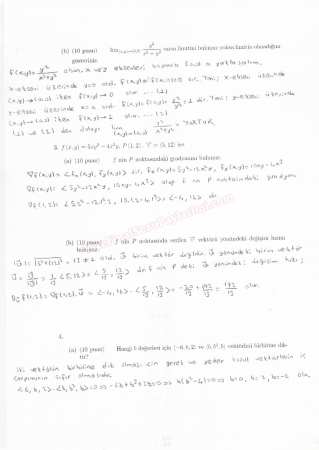 (b) (10 puan) lim(x,y)→(0,0) y²/(x²+y²) varsa limitini bulunuz yoksa limitin olmadığını
gösteriniz.
f(x,y) = y²/(x²+y²) olsun. x ve y eksenleri boyunca (0,0) a yaklaşalım.
x-ekseni üzerinde y=0 old. f(x,y)=f(x,0)=0 dır. Yani; x-ekseni üzerinde
(x,y)→(0,0) iken f(x,y)→0 olur. ... (1)
y-ekseni üzerinde x=0 old. f(x,y)= y²/y² = 1 dir. Yani; y-ekseni üzerinde
(x,y)→(0,0) iken f(x,y)→1 olur. ... (2)
(1) ve (2) den dolayı lim (x,y)→(0,0) y²/(x²+y²) = YOKTUR
3. f(x,y) = 5xy² − 4x³y, P(1,2), v = (5,12) ise
(a) (10 puan) f nin P noktasındaki gradyanını bulunuz.
∇f(x,y) = <fx(x,y), fy(x,y)> dir. fx(x,y)=5y²-12x²y, fy(x,y)=10xy-4x³
∇f(x,y) = <5y²-12x²y, 10xy-4x³> olup f nin P noktasındaki gradyanı
∇f(1,2) = <5.2²-12.1².2, 10.1.2-4.1³> = <-4, 16> dır
(b) (10 puan) f nin P noktasında verilen v vektörü yönündeki değişim hızını
bulunuz.
|v| = √(5²+(12)²) = 13 ≠ 1 old. v birim vektör değildir. v yönündeki birim vektör
u = v/|v| = 1/13 <5,12> = <5/13, 12/13> dir. f nin P deki v yönündeki değişim hızı;
Duf(1,2) = ∇f(1,2).u = <-4,16>.<5/13, 12/13> = -20/13 + 192/13 = 172/13 olur.
4.
(a) (10 puan) Hangi b değerleri için (−6, b, 2) ve (b, b², b) vektörleri birbirine dik-
tir?
iki vektörün birbirine dik olması için gerek ve yeter koşul vektörlerin iç
çarpımının sıfır olmasıdır.
<-6, b, 2>.<b, b², b> = 0 => -6b+b³+2b=0 => b(b²-4)=0 => b=0, b=2, b=-2 olur.